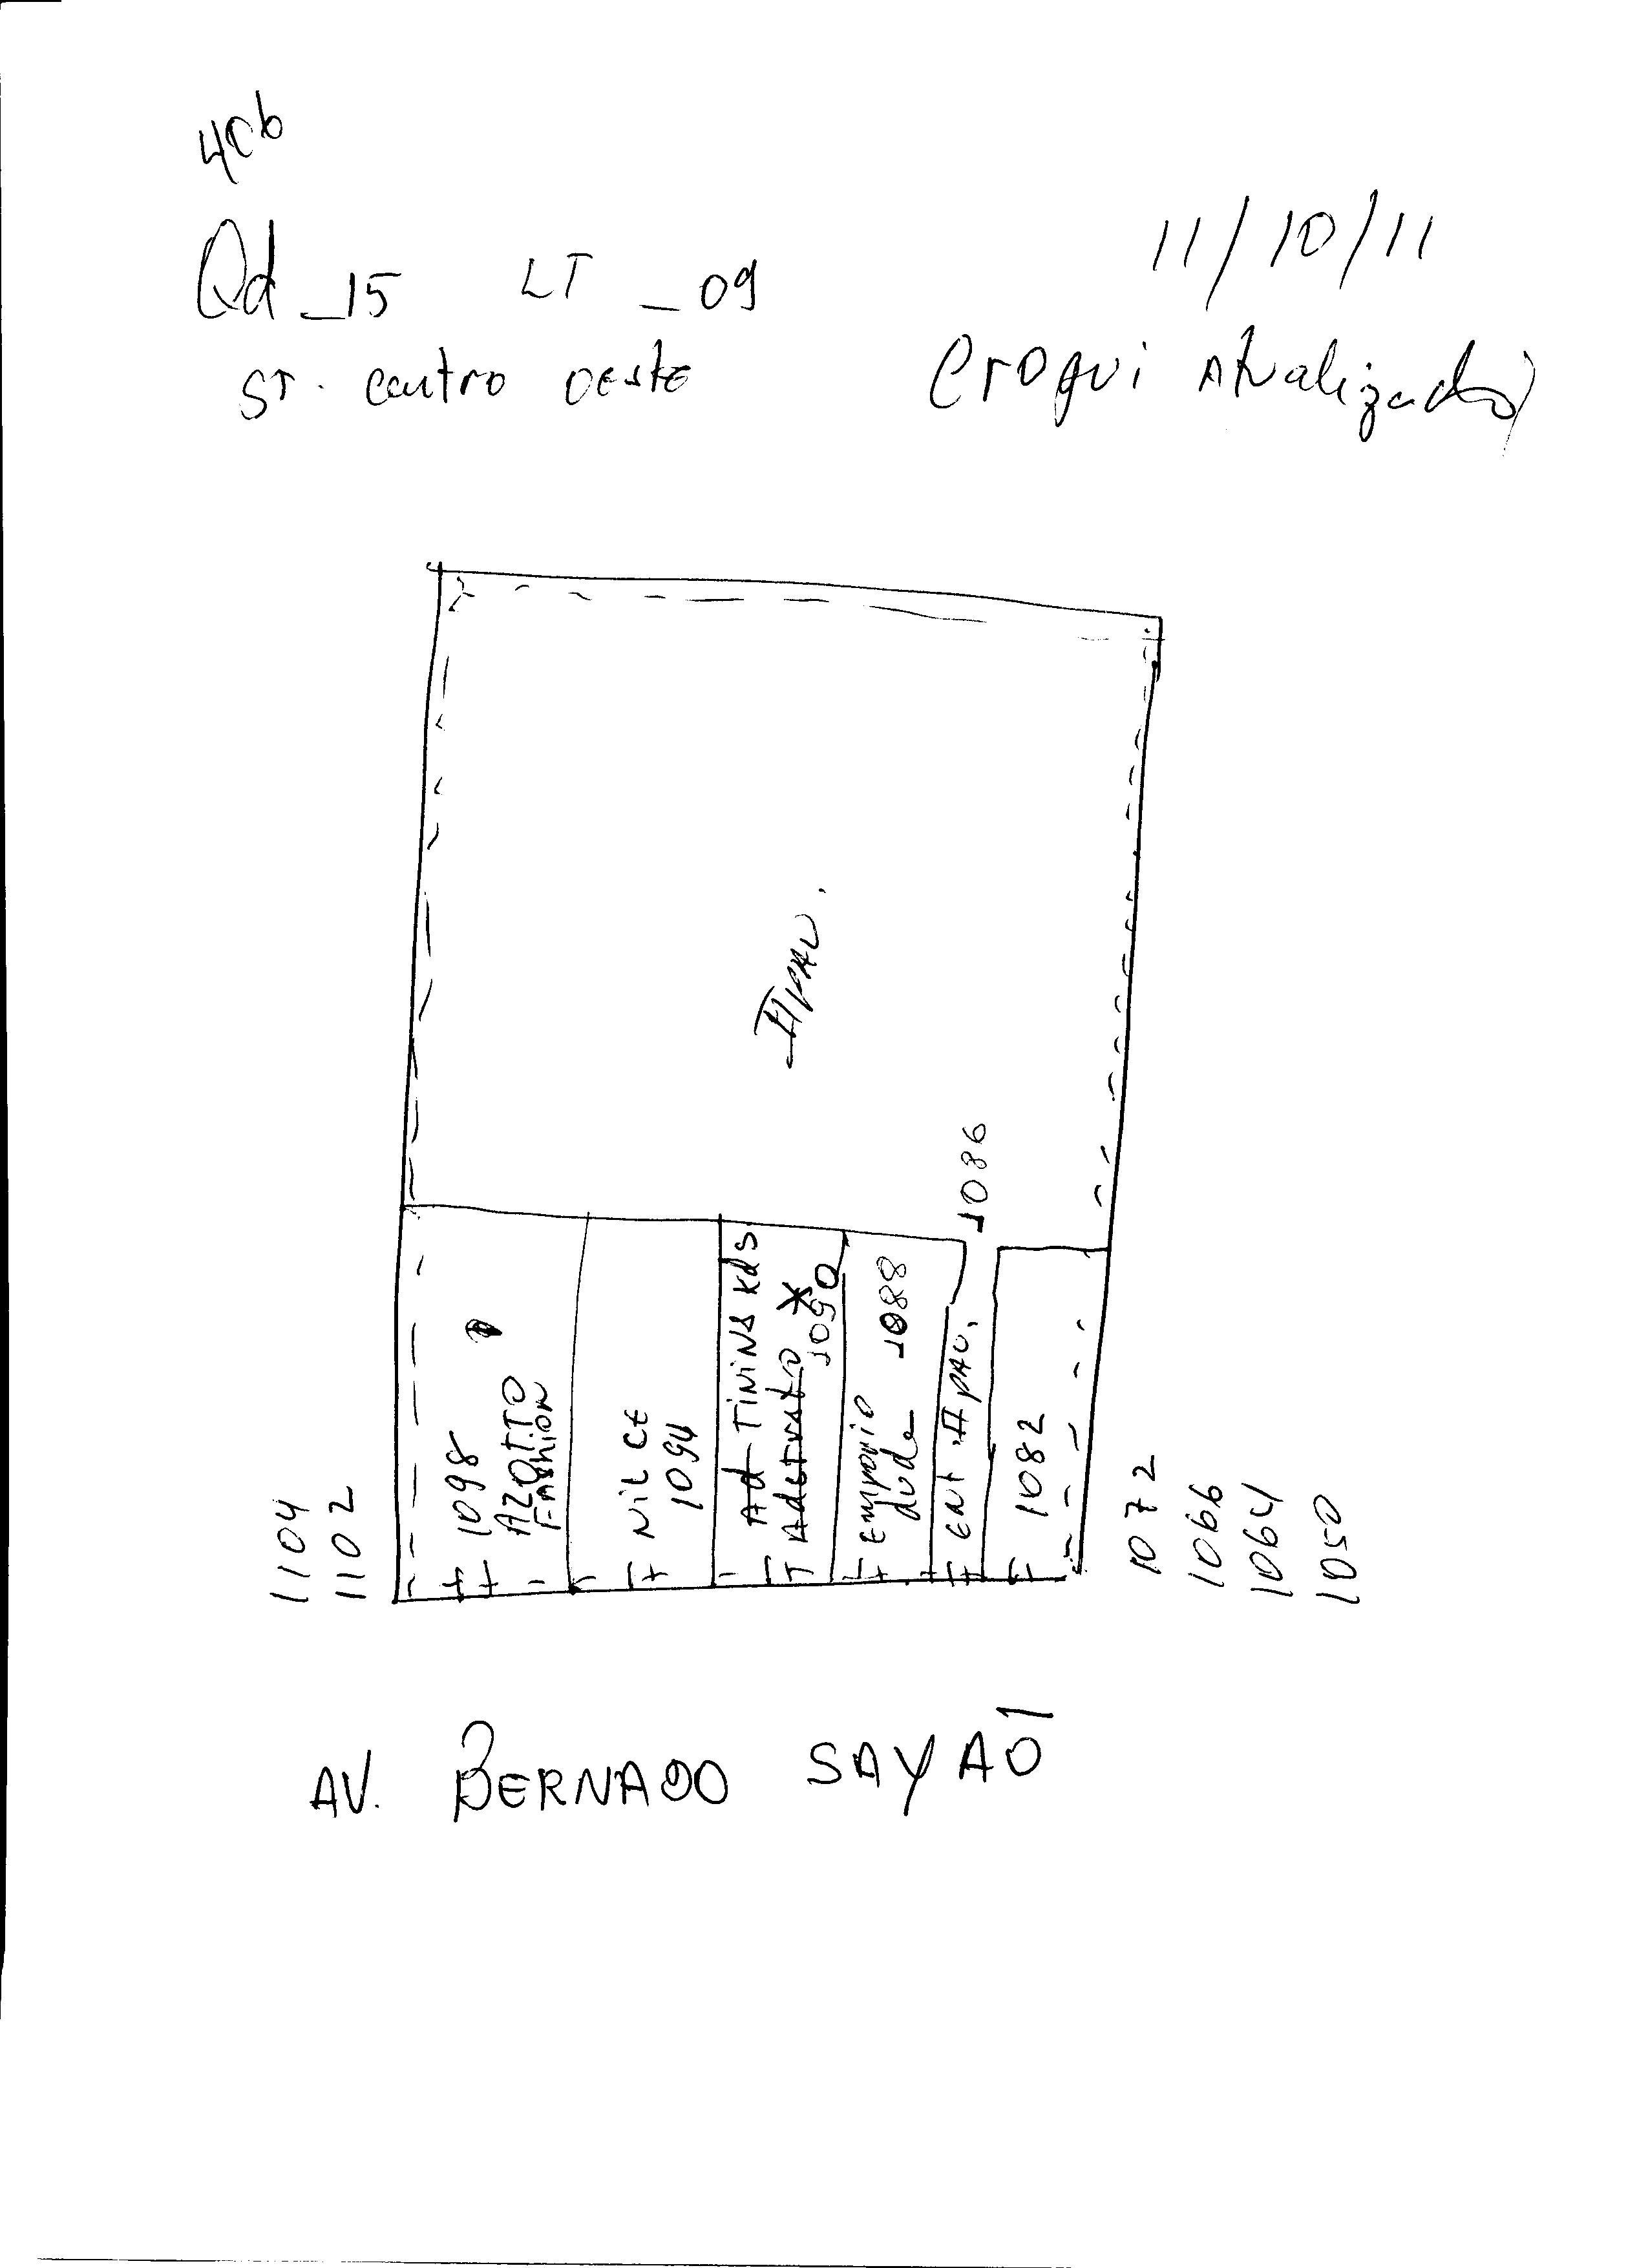 Qd_15 LT_09
11/10/11
ST. centro oeste
Croqui Atualizado
II PAV.
1086
1098
AZOTTO
FASHION
NILCE
1094
Ad TININS kds
1090
Emporio
dude
1088
ENT. II PAV.
1082
1104
1102
1072
1066
1064
1050
AV. BERNADO SAYAO